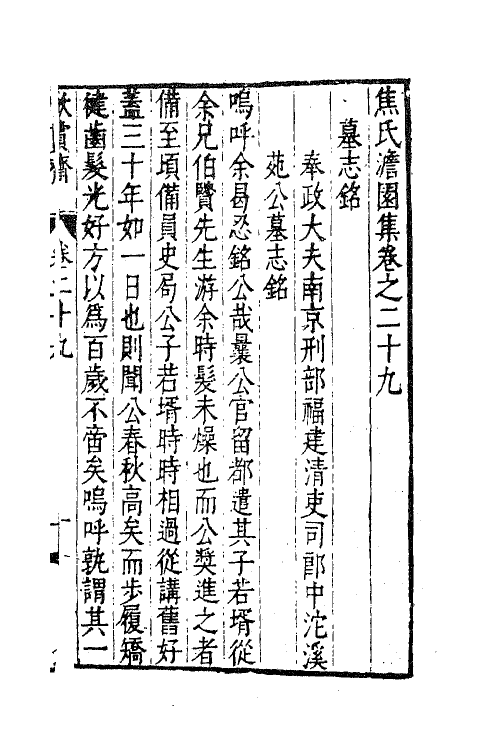 焦氏澹園集卷之二十九
墓志銘
奉政大夫南京刑部福建清吏司郎中沱溪
苑公墓志銘
嗚呼余曷忍銘公哉曩公官留都遣其子若壻從
余兄伯賢先生游余時髮未燥也而公奬進之者
備至頃備員史局公子若壻時時相過從講舊好
蓋三十年如一日也則聞公春秋高矣而步履矯
健齒髮光好方以爲百歲不啻矣嗚呼孰謂其一